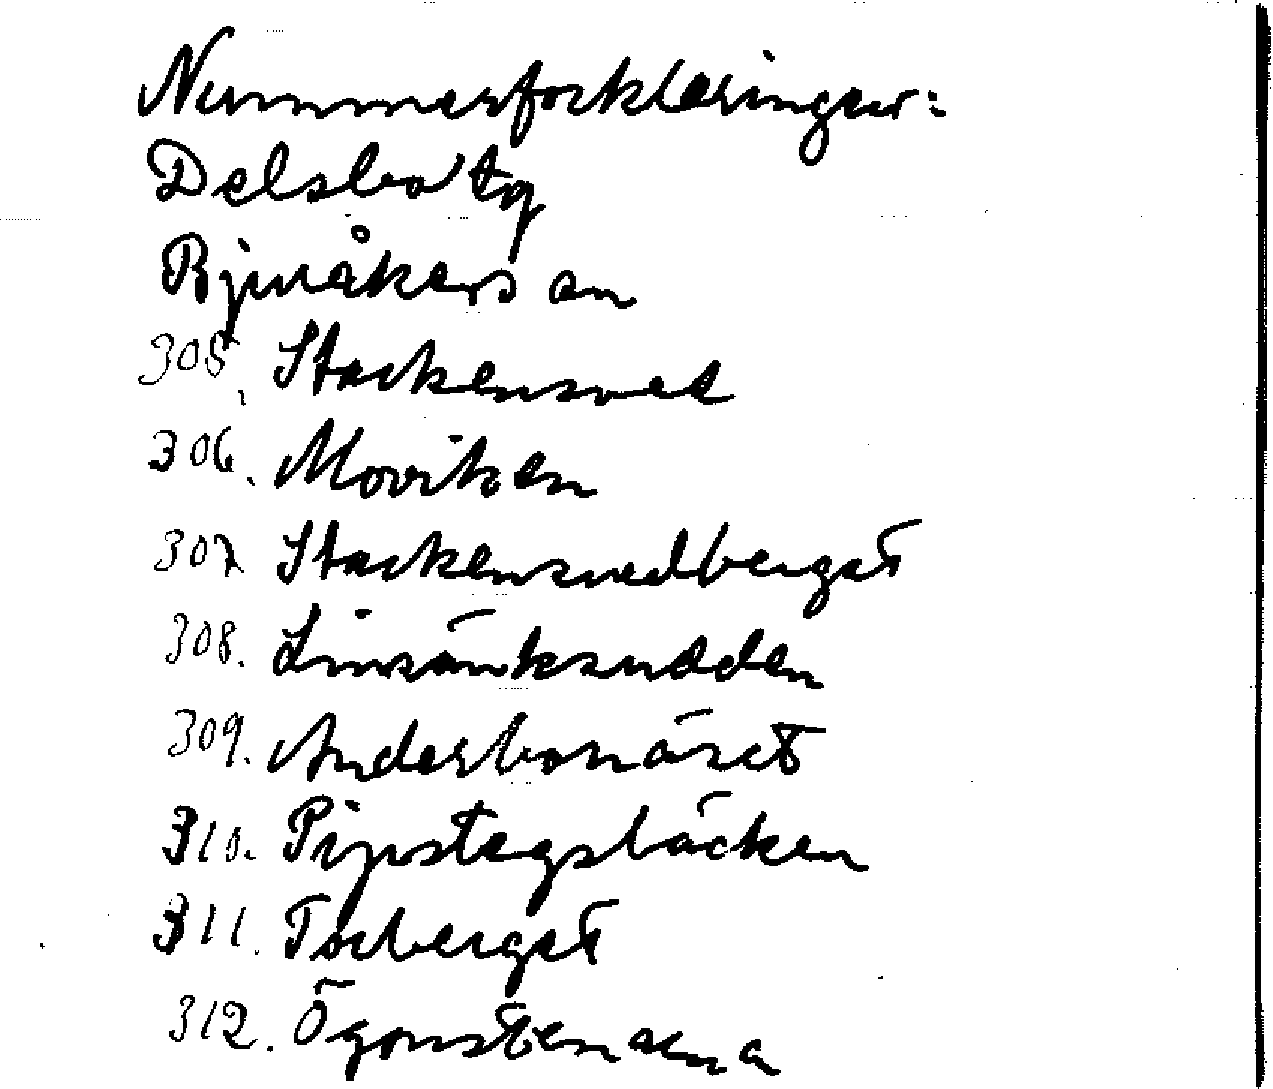 Nummerförklaringar:
Delsbo tg
Bjuråkers sn
305. Stackensved
306. Moviken
307. Stackensvedberget
308. Linsänksudden
309. Anderbonäset
310. Pipstegsbäcken
311. Torberget
312. Ögonstenarna